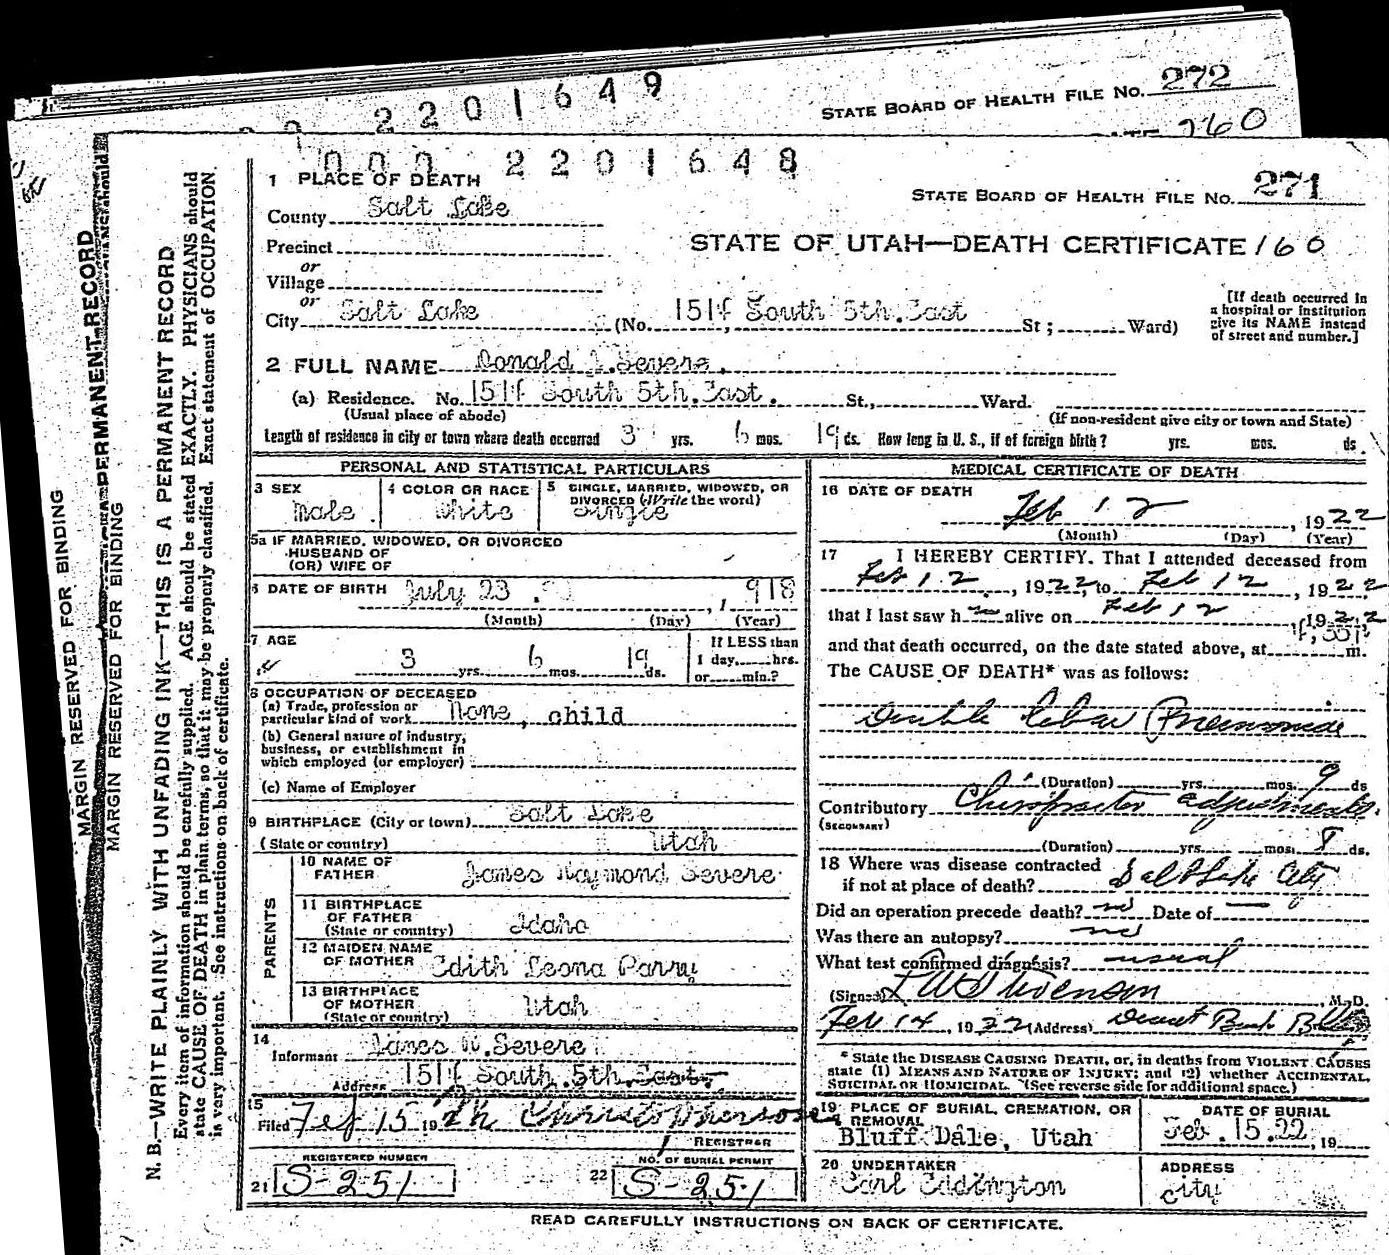 2201649
STATE BOARD OF HEALTH FILE NO. 272
260
000 2201648
1 PLACE OF DEATH
STATE BOARD OF HEALTH FILE NO. 271
County Salt Lake
Precinct
STATE OF UTAH—DEATH CERTIFICATE 160
or
Village
or
City Salt Lake (No. 1514 South 5th. East St; Ward)
[If death occurred in
a hospital or institution
give its NAME instead
of street and number.]
2 FULL NAME Donald J. Severe.
(a) Residence. No. 1514 South 5th. East. St., Ward.
(Usual place of abode) (If non-resident give city or town and State)
Length of residence in city or town where death occurred 3 yrs. 6 mos. 19 ds. How long in U. S., if of foreign birth? yrs. mos. ds.
PERSONAL AND STATISTICAL PARTICULARS
3 SEX
Male.
4 COLOR OR RACE
White
5 SINGLE, MARRIED, WIDOWED, OR
DIVORCED (Write the word)
Single
5a IF MARRIED, WIDOWED, OR DIVORCED
HUSBAND OF
(OR) WIFE OF
6 DATE OF BIRTH July 23, 1918
(Month) (Day) (Year)
7 AGE
3 yrs. 6 mos. 19 ds.
If LESS than
1 day, hrs.
or min.?
8 OCCUPATION OF DECEASED
(a) Trade, profession or
particular kind of work None, child
(b) General nature of industry,
business, or establishment in
which employed (or employer)
(c) Name of Employer
9 BIRTHPLACE (City or town) Salt Lake
(State or country) Utah
PARENTS
10 NAME OF
FATHER James Raymond Severe
11 BIRTHPLACE
OF FATHER
(State or country) Idaho
12 MAIDEN NAME
OF MOTHER Edith Leona Parry
13 BIRTHPLACE
OF MOTHER
(State or country) Utah
14
Informant James R. Severe
Address 1514 South 5th. East.
15
Filed Feb 15 19 Christopherson
REGISTRAR
REGISTERED NUMBER
21 S-251
NO. OF BURIAL PERMIT
22 S-251
MEDICAL CERTIFICATE OF DEATH
16 DATE OF DEATH
Feb 12, 1922
(Month) (Day) (Year)
17 I HEREBY CERTIFY, That I attended deceased from
Feb 12, 1922, to Feb 12, 1922
that I last saw h alive on Feb 12, 1922,
and that death occurred, on the date stated above, at m.
The CAUSE OF DEATH* was as follows:
Double lobar Pneumonia
(Duration) yrs. mos. 9 ds
Contributory Chiropractor adjustments.
(SECONDARY)
(Duration) yrs. mos. 8 ds.
18 Where was disease contracted
if not at place of death? Salt Lake City
Did an operation precede death? no Date of —
Was there an autopsy? no
What test confirmed diagnosis? usual
(Signed) Stevenson, M. D.
Feb 14, 1922 (Address) Deseret Bank Bldg
* State the DISEASE CAUSING DEATH, or, in deaths from VIOLENT CAUSES
state (1) MEANS AND NATURE OF INJURY; and (2) whether ACCIDENTAL,
SUICIDAL OR HOMICIDAL. (See reverse side for additional space.)
19 PLACE OF BURIAL, CREMATION, OR
REMOVAL
Bluff Dale, Utah
DATE OF BURIAL
Feb. 15.22, 19
20 UNDERTAKER
Carl Eddington
ADDRESS
city
READ CAREFULLY INSTRUCTIONS ON BACK OF CERTIFICATE.
MARGIN RESERVED FOR BINDING
PERMANENT RECORD
MARGIN RESERVED FOR BINDING
N. B.—WRITE PLAINLY WITH UNFADING INK—THIS IS A PERMANENT RECORD
Every item of information should be carefully supplied. AGE should be stated EXACTLY. PHYSICIANS should
state CAUSE OF DEATH in plain terms, so that it may be properly classified. Exact statement of OCCUPATION
is very important. See instructions on back of certificate.